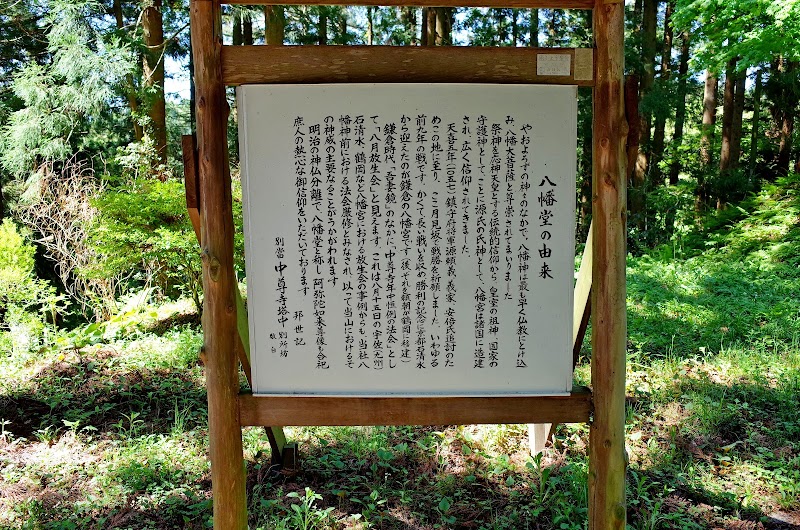 八幡堂の由来
やおよろずの神々のなかで、八幡神は最も早く仏教にとけ込
み、八幡大菩薩と尊崇されてまいりました。
祭神を応神天皇とする伝統的信仰から、皇室の祖神・国家の
守護神として、ことに源氏の氏神として、八幡宮は諸国に造建
され、広く信仰されてきました。
天喜五年(一〇五七)鎮守府将軍源頼義、義家、安倍氏追討のた
めこの地に至り、ここ月見坂で戦勝を祈願しました。いわゆる
前九年の戦です。かくて長い戦いを収め勝利の記念に京都石清水
から迎えたのが鎌倉の八幡宮です(後、これを頼朝が鶴岡に移建)
鎌倉時代、『吾妻鏡』のなかに、中尊寺年中恒例の法会とし
て、「八月放生会」と見えます。これは八月十五日の宇佐(九州)
石清水、鶴岡など八幡宮における放生会の事例からも、当社八
幡神前における法会厳修とみなされ、以って当山におけるそ
の神威の主要なることがうかがわれます。
明治の神仏分離で八幡堂と称し、阿弥陀如来尊像も合祀
庶人の熱心な御信仰をいただいております。
邦世記
別當 中尊寺塔中 別所坊
敬白